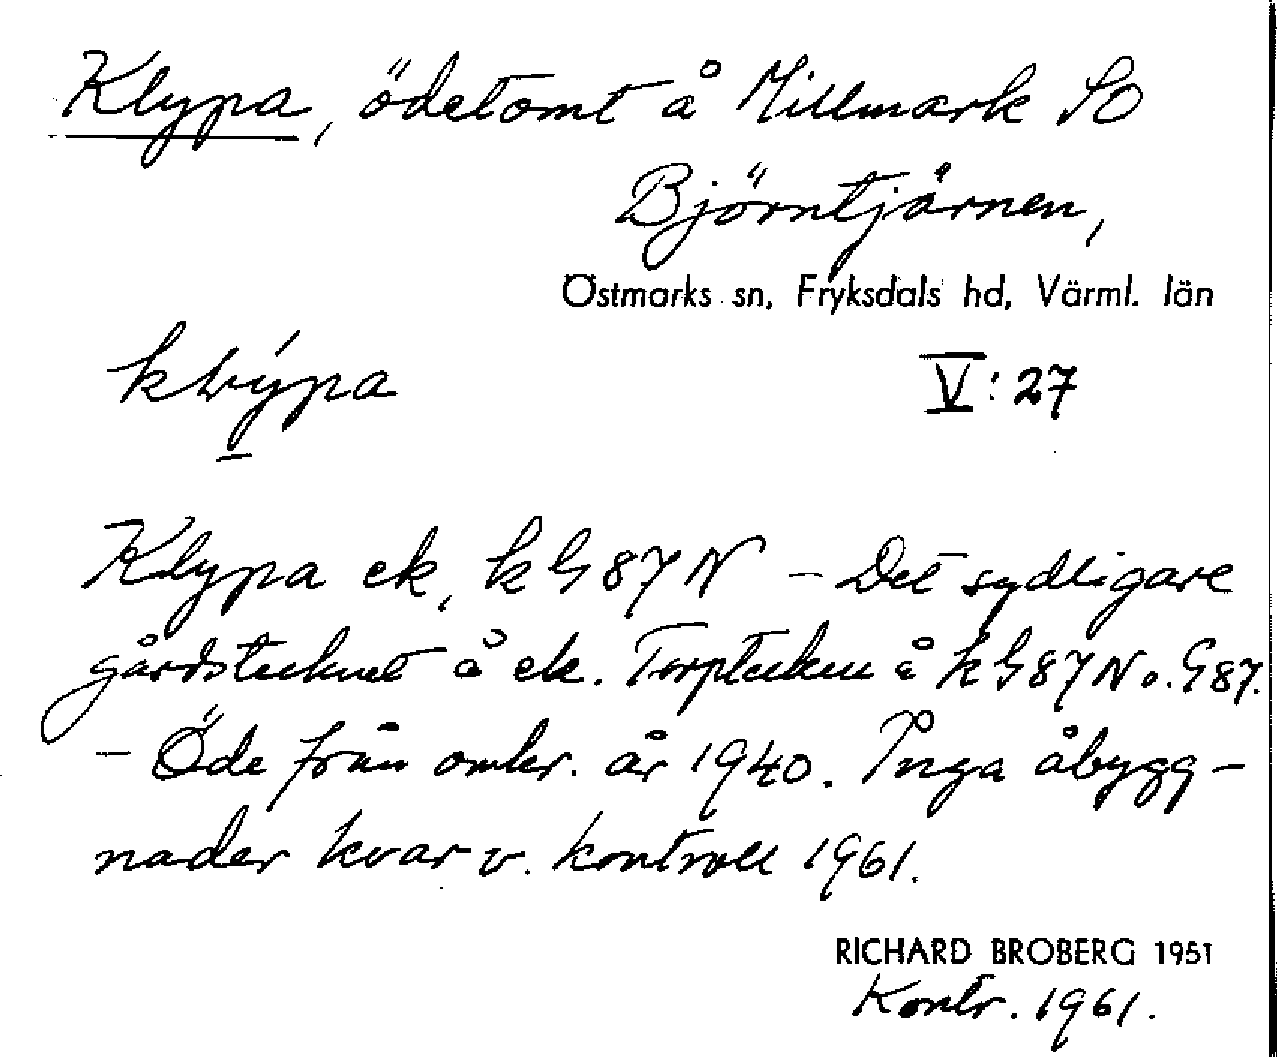 Klypa, ödetomt å Millmark SO
Björntjärnen,
Östmarks sn, Fryksdals hd, Värml. län
V: 27
Klypa ek, k G 87 N – Det sydligare
gårdstecknet å ek. Torptecken å k G 87 N o. G 87.
– Öde från omkr. år 1940. Inga åbygg-
nader kvar v. kontroll 1961.
RICHARD BROBERG 1951
Kontr. 1961.